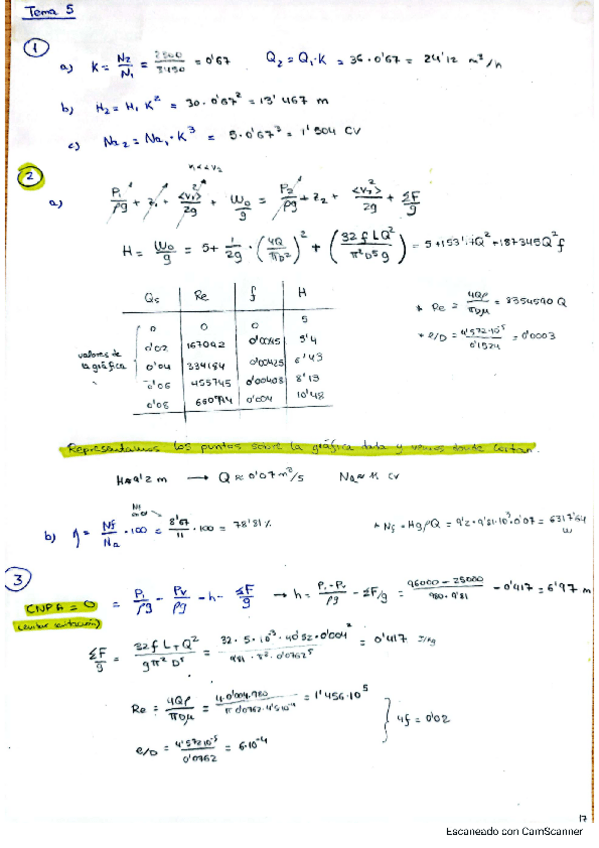 Tema 5
1
a) K = N2/N1 = 2500/3450 = 0'67 Q2 = Q1·K = 36·0'67 = 24'12 m³/h
b) H2 = H1 K² = 30·0'67² = 13'467 m
c) Na2 = Na1·K³ = 5·0'67³ = 1'504 CV
2
v1<<v2
a) P1/ρg + z1 + <v1>²/2g + W0/g = P2/ρg + z2 + <v2>²/2g + ΣF/g
H = W0/g = 5 + 1/2g · (4Q/πD²)² + (32 f L Q²/π² D⁵ g) = 5 + 153'17Q² + 187345Q² f
Qs Re f H
0 0 0 5
0'02 167092 0'0045 5'4
valores de la gráfica
0'04 334184 0'00425 6'43
0'06 455745 0'00408 8'13
0'08 0'004 10'48
* Re = 4Qρ/πDμ = 8354590 Q
* e/D = 4'572·10⁻⁵/0'1524 = 0'0003
Representamos los puntos sobre la gráfica dada y vemos donde cortan.
H=9'2 m → Q ≈ 0'07 m³/s Na ≈ 11 CV
b) η = Nf/Na · 100 = 8'67/11 · 100 = 78'81%
* Nf = Hgρ Q = 9'2·9'81·10³·0'07 = 6317'64 W
3
CNPA = 0 = P1/ρg - Pv/ρg - h - ΣF/g → h = P1-Pv/ρg - ΣF/g = 96000 - 25000/980·9'81 - 0'417 = 6'97 m
(evitar cavitación)
ΣF/g = 32 f LT Q²/g π² D⁵ = 32·5·10⁻³·40'52·0'004²/9'81·π²·0'0762⁵ = 0'417 J/kg
Re = 4Qρ/πDμ = 4·0'004·980/π·0'0762·4'5·10⁻⁴ = 1'456·10⁵
4f = 0'02
e/D = 4'572·10⁻⁵/0'0762 = 6·10⁻⁴
17
Escaneado con CamScanner